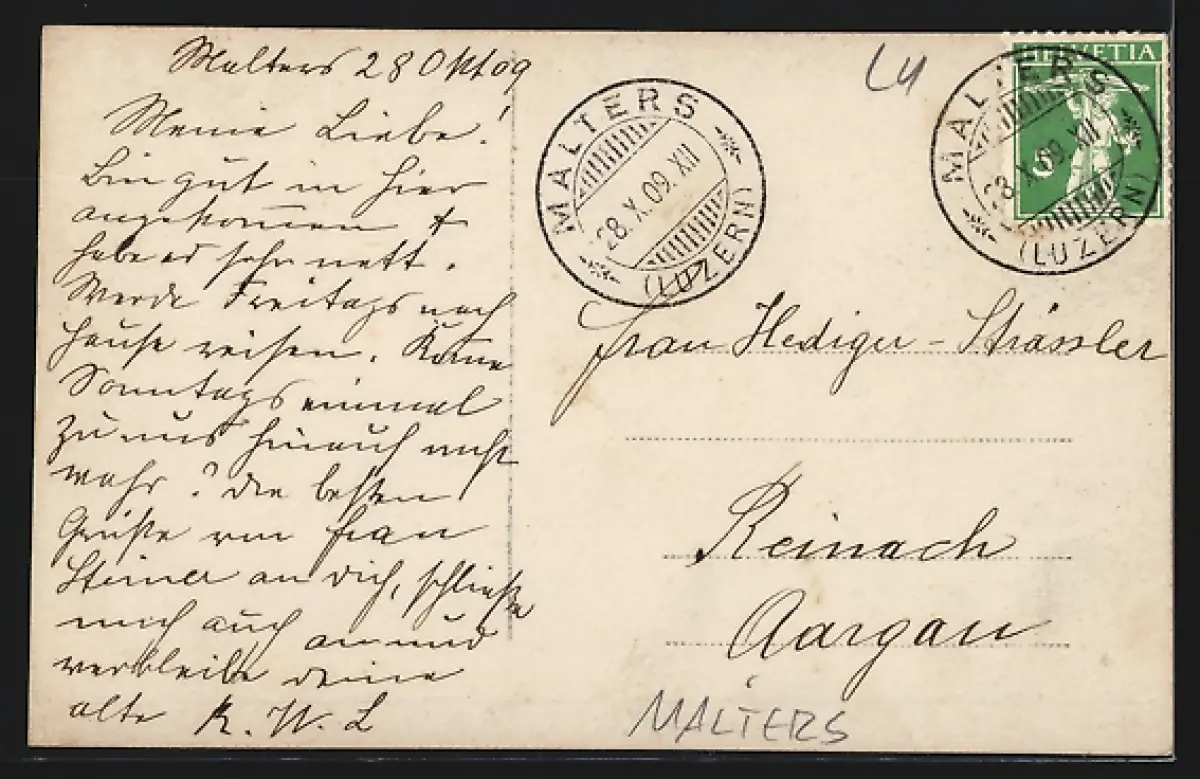 Malters 28 Okt 09
Meine Liebe!
Bin gut in hier
angekommen &
habe es sehr nett.
Werde Freitags nach
Hause reisen. Komme
Sonntags einmal
zu uns hinauf nicht
wahr? Die besten
Grüße von Frau
Steiner an dich, schließe
mich auch an und
verbleibe deine
alte K. W. L
MALTERS
28.X.09.XII
(LUZERN)
LU
HELVETIA
MALTERS
28.X.09.XII
(LUZERN)
Frau Hediger-Strässler
Reinach
Aargau
MALTERS